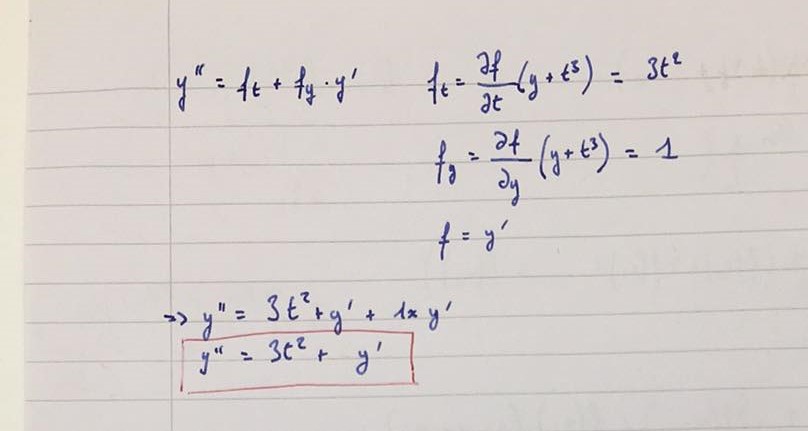 y'' = f_t + f_y · y'    f_t = ∂f/∂t (y + t³) = 3t²
f_y = ∂f/∂y (y + t³) = 1
f = y'
=> y'' = 3t² + y' + 1x y'
y'' = 3t² + y'